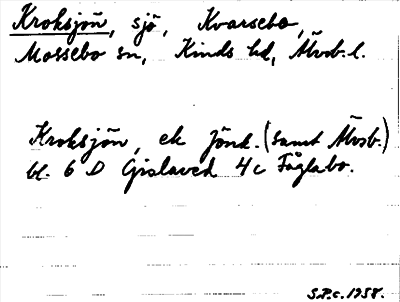 Kroksjön, sjö, Kvarsebo,
Mossebo sn, Kinds hd, Älvsb. l.
Kroksjön, ek Jönk. (samt Älvsb.)
bl. 6 D Gislaved 4c Fåglabo.
S.P.c. 1958.